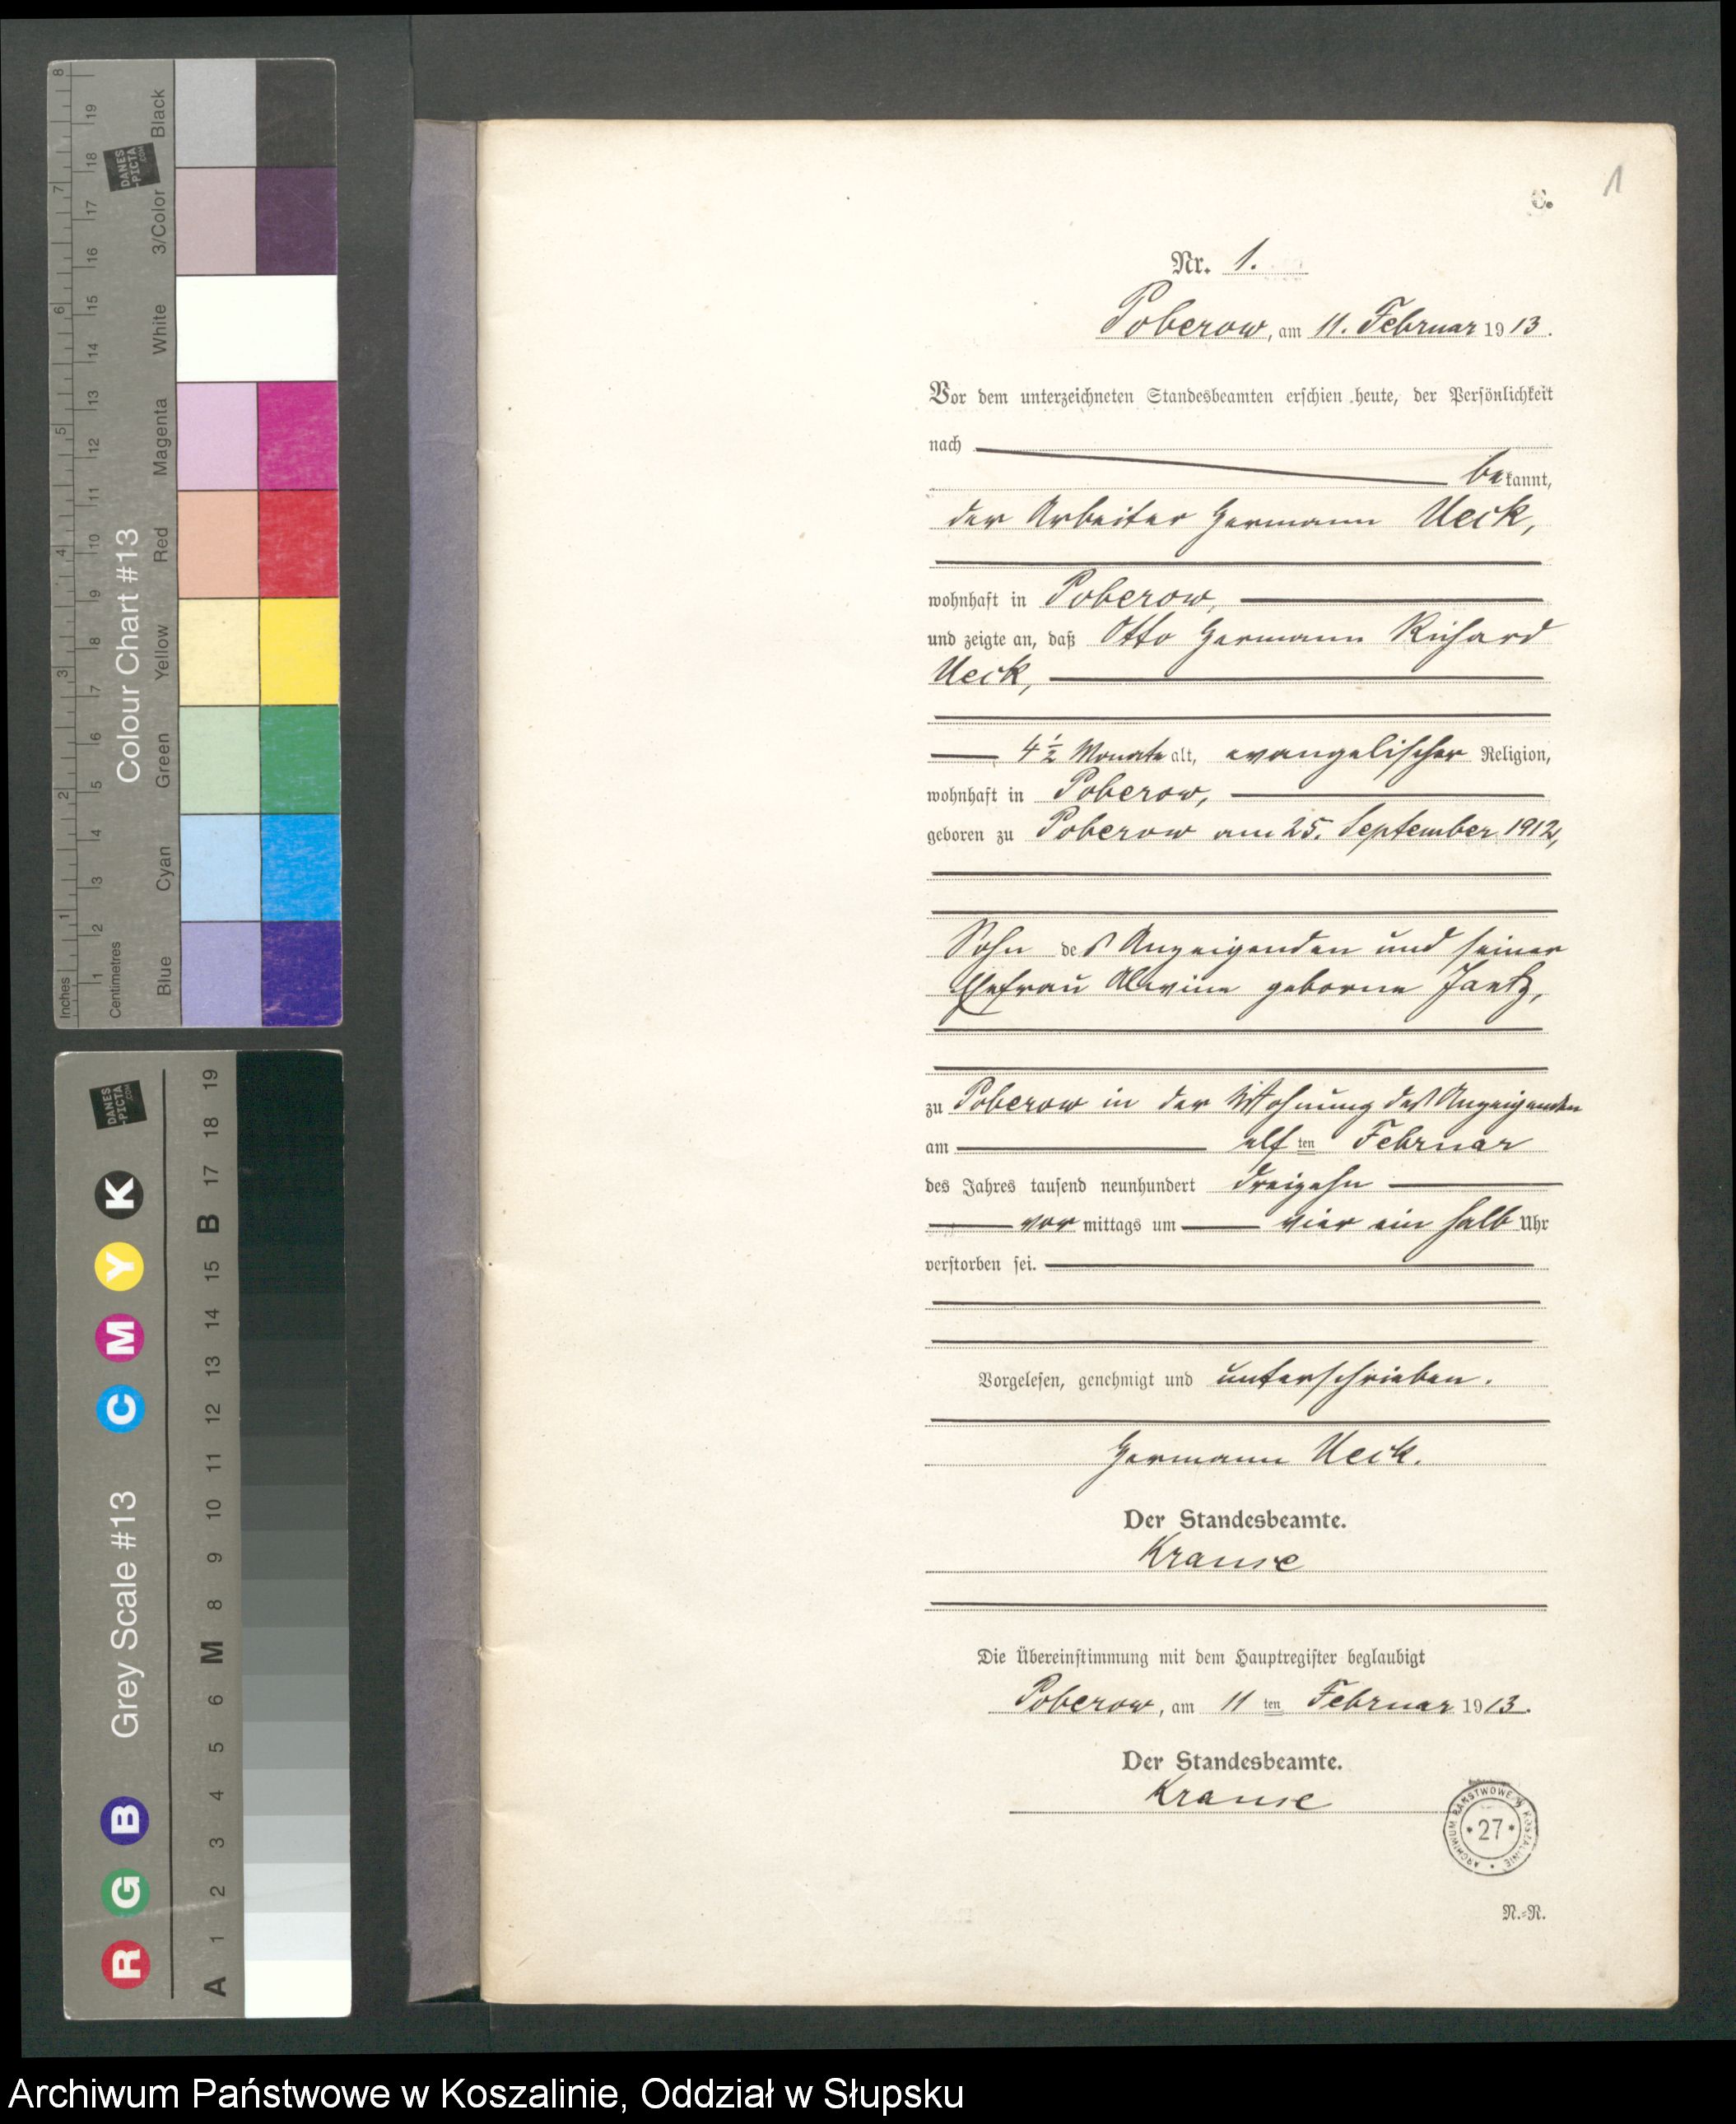 1
C.
Nr. 1.
Poberow, am 11. Februar 1913.
Vor dem unterzeichneten Standesbeamten erschien heute, der Persönlichkeit
nach
bekannt,
der Arbeiter Hermann Ueck,
wohnhaft in Poberow,
und zeigte an, daß Otto Hermann Richard
Ueck,
4 1/2 Monate alt, evangelischer Religion,
wohnhaft in Poberow,
geboren zu Poberow am 25. September 1912,
Sohn des Anzeigenden und seiner
Ehefrau geborne
zu Poberow in der Wohnung des Anzeigenden
am elf ten Februar
des Jahres tausend neunhundert dreizehn
vor mittags um vier ein halb Uhr
verstorben sei.
Vorgelesen, genehmigt und unterschrieben.
Hermann Ueck.
Der Standesbeamte.
Krause
Die Übereinstimmung mit dem Hauptregister beglaubigt
Poberow, am 11 ten Februar 1913.
Der Standesbeamte.
Krause
ARCHIWUM PAŃSTWOWE W KOSZALINIE
* 27 *
N.-R.
Colour Chart #13
Inches 1 2 3 4 5 6 7 8
Centimetres 1 2 3 4 5 6 7 8 9 10 11 12 13 14 15 16 17 18 19
Blue Cyan Green Yellow Red Magenta White 3/Color Black
DANES
-PICTA
.COM
Grey Scale #13
R G B C M Y K
A 1 2 3 4 5 6 M 8 9 10 11 12 13 14 15 B 17 18 19
DANES
-PICTA
.COM
Archiwum Państwowe w Koszalinie, Oddział w Słupsku